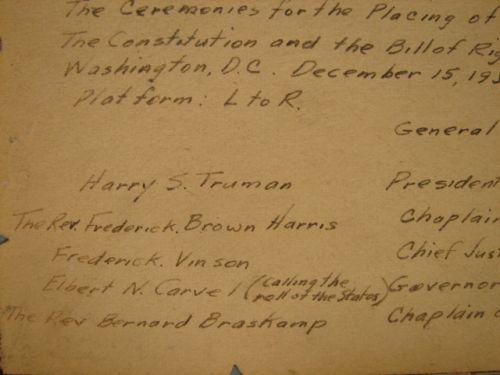 The Ceremonies for the Placing of
The Constitution and the Bill of Rig
Washington, D.C. December 15, 195
Platform: L to R.
General
Harry S. Truman President
The Rev. Frederick Brown Harris Chaplain
Frederick. Vinson Chief Just
Elbert N. Carvel (calling the roll of the States) Governor
The Rev Bernard Braskamp Chaplain o